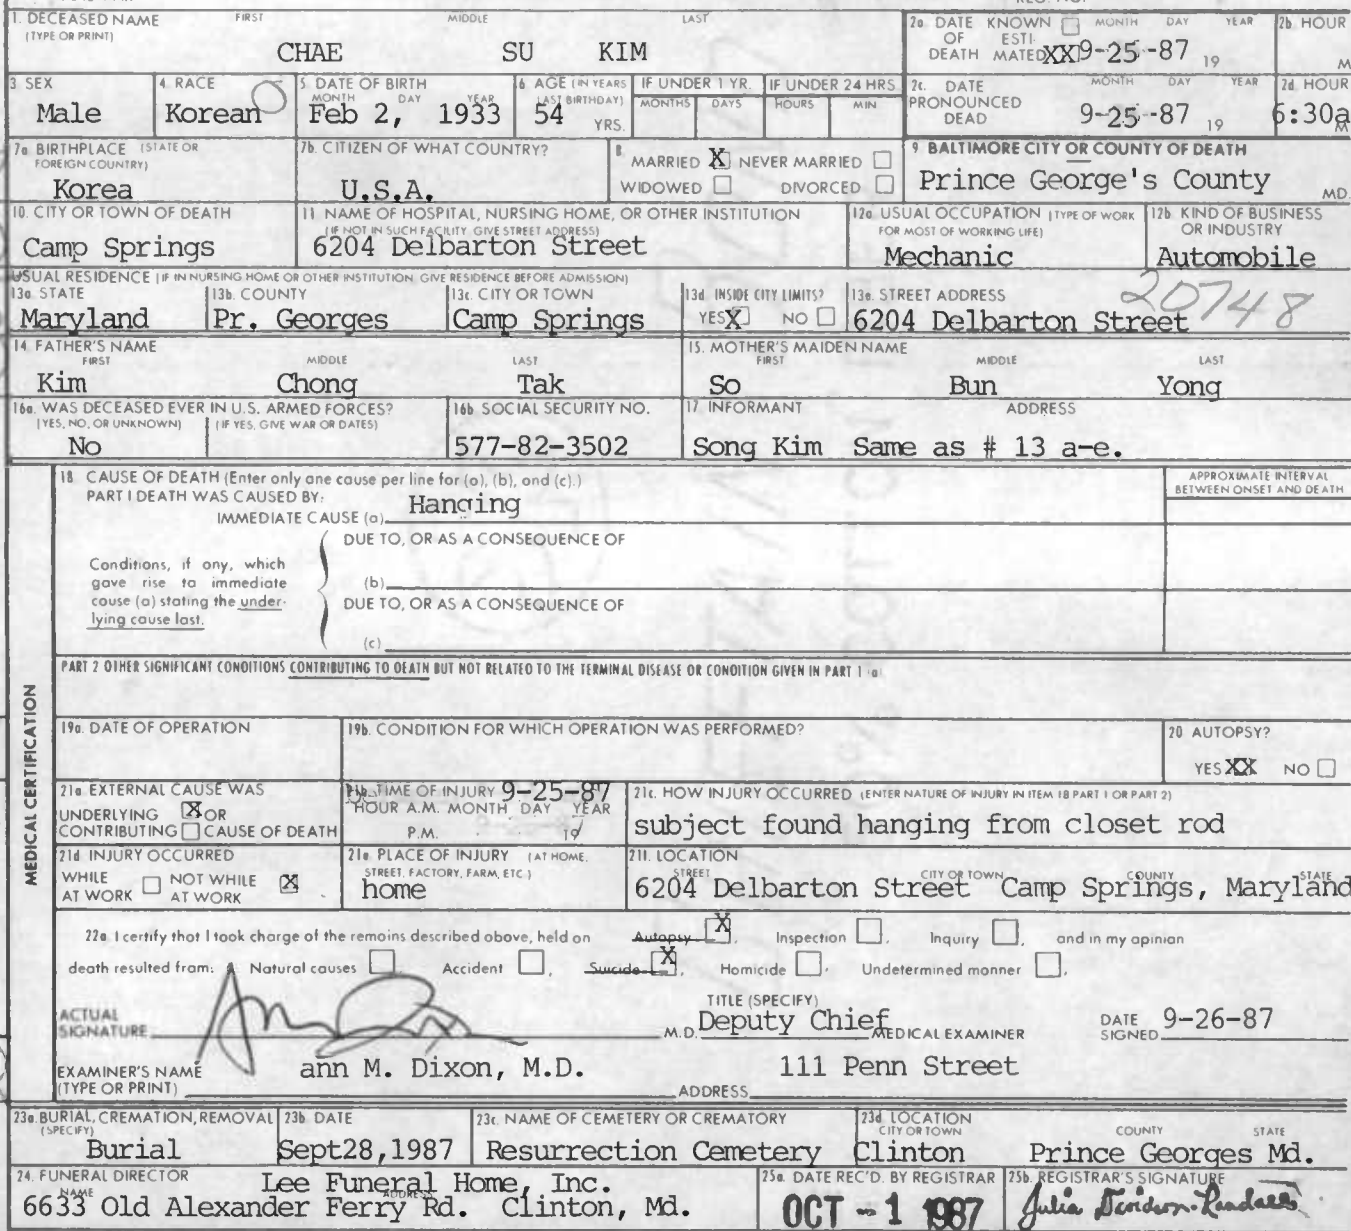 1. DECEASED NAME FIRST MIDDLE LAST
(TYPE OR PRINT)
CHAE SU KIM
2a DATE KNOWN MONTH DAY YEAR
OF ESTI-
DEATH MATED XX 9-25-87 19
2b. HOUR
M
3 SEX
Male
4. RACE
Korean
5 DATE OF BIRTH
MONTH DAY YEAR
Feb 2, 1933
6 AGE (IN YEARS
LAST BIRTHDAY)
54 YRS.
IF UNDER 1 YR.
MONTHS DAYS
IF UNDER 24 HRS
HOURS MIN
2c. DATE MONTH DAY YEAR
PRONOUNCED
DEAD 9-25-87 19
2d HOUR
6:30a
M
7a BIRTHPLACE (STATE OR
FOREIGN COUNTRY)
Korea
7b. CITIZEN OF WHAT COUNTRY?
U.S.A.
8
MARRIED X NEVER MARRIED
WIDOWED DIVORCED
9 BALTIMORE CITY OR COUNTY OF DEATH
Prince George's County MD.
10. CITY OR TOWN OF DEATH
Camp Springs
11 NAME OF HOSPITAL, NURSING HOME, OR OTHER INSTITUTION
(IF NOT IN SUCH FACILITY GIVE STREET ADDRESS)
6204 Delbarton Street
12a USUAL OCCUPATION (TYPE OF WORK
FOR MOST OF WORKING LIFE)
Mechanic
12b KIND OF BUSINESS
OR INDUSTRY
Automobile
USUAL RESIDENCE (IF IN NURSING HOME OR OTHER INSTITUTION GIVE RESIDENCE BEFORE ADMISSION)
13a. STATE
Maryland
13b. COUNTY
Pr. Georges
13c. CITY OR TOWN
Camp Springs
13d INSIDE CITY LIMITS?
YES X NO
13e. STREET ADDRESS 20748
6204 Delbarton Street
14. FATHER'S NAME
FIRST MIDDLE LAST
Kim Chong Tak
15. MOTHER'S MAIDEN NAME
FIRST MIDDLE LAST
So Bun Yong
16a. WAS DECEASED EVER IN U.S. ARMED FORCES?
(YES, NO, OR UNKNOWN) (IF YES, GIVE WAR OR DATES)
No
16b SOCIAL SECURITY NO.
577-82-3502
17 INFORMANT ADDRESS
Song Kim Same as # 13 a-e.
MEDICAL CERTIFICATION
18 CAUSE OF DEATH (Enter only one cause per line for (a), (b), and (c).)
PART I DEATH WAS CAUSED BY:
IMMEDIATE CAUSE (a) Hanging
APPROXIMATE INTERVAL
BETWEEN ONSET AND DEATH
DUE TO, OR AS A CONSEQUENCE OF
Conditions, if any, which
gave rise to immediate
cause (a) stating the under-
lying cause last.
(b)
DUE TO, OR AS A CONSEQUENCE OF
(c)
PART 2 OTHER SIGNIFICANT CONDITIONS CONTRIBUTING TO DEATH BUT NOT RELATED TO THE TERMINAL DISEASE OR CONDITION GIVEN IN PART 1 (a)
19a. DATE OF OPERATION
19b. CONDITION FOR WHICH OPERATION WAS PERFORMED?
20 AUTOPSY?
YES XX NO
21a. EXTERNAL CAUSE WAS
UNDERLYING X OR
CONTRIBUTING CAUSE OF DEATH
21b. TIME OF INJURY 9-25-87
HOUR A.M. MONTH DAY YEAR
P.M. 19
21c. HOW INJURY OCCURRED (ENTER NATURE OF INJURY IN ITEM 18 PART 1 OR PART 2)
subject found hanging from closet rod
21d INJURY OCCURRED
WHILE NOT WHILE X
AT WORK AT WORK
21e PLACE OF INJURY (AT HOME,
STREET, FACTORY, FARM, ETC.)
home
21f. LOCATION
STREET CITY OR TOWN COUNTY STATE
6204 Delbarton Street Camp Springs, Maryland
22a I certify that I took charge of the remains described above, held on Autopsy X, Inspection, Inquiry, and in my opinion
death resulted from: Natural causes Accident, Suicide X, Homicide, Undetermined manner.
ACTUAL
SIGNATURE M.D.
TITLE (SPECIFY)
Deputy Chief MEDICAL EXAMINER
DATE
SIGNED 9-26-87
EXAMINER'S NAME
(TYPE OR PRINT) ann M. Dixon, M.D.
ADDRESS 111 Penn Street
23a. BURIAL, CREMATION, REMOVAL
(SPECIFY)
Burial
23b. DATE
Sept28,1987
23c. NAME OF CEMETERY OR CREMATORY
Resurrection Cemetery
23d LOCATION
CITY OR TOWN COUNTY STATE
Clinton Prince Georges Md.
24. FUNERAL DIRECTOR
Lee Funeral Home, Inc.
NAME ADDRESS
6633 Old Alexander Ferry Rd. Clinton, Md.
25a. DATE REC'D. BY REGISTRAR
OCT - 1 1987
25b. REGISTRAR'S SIGNATURE
Julia Davidson-Randall